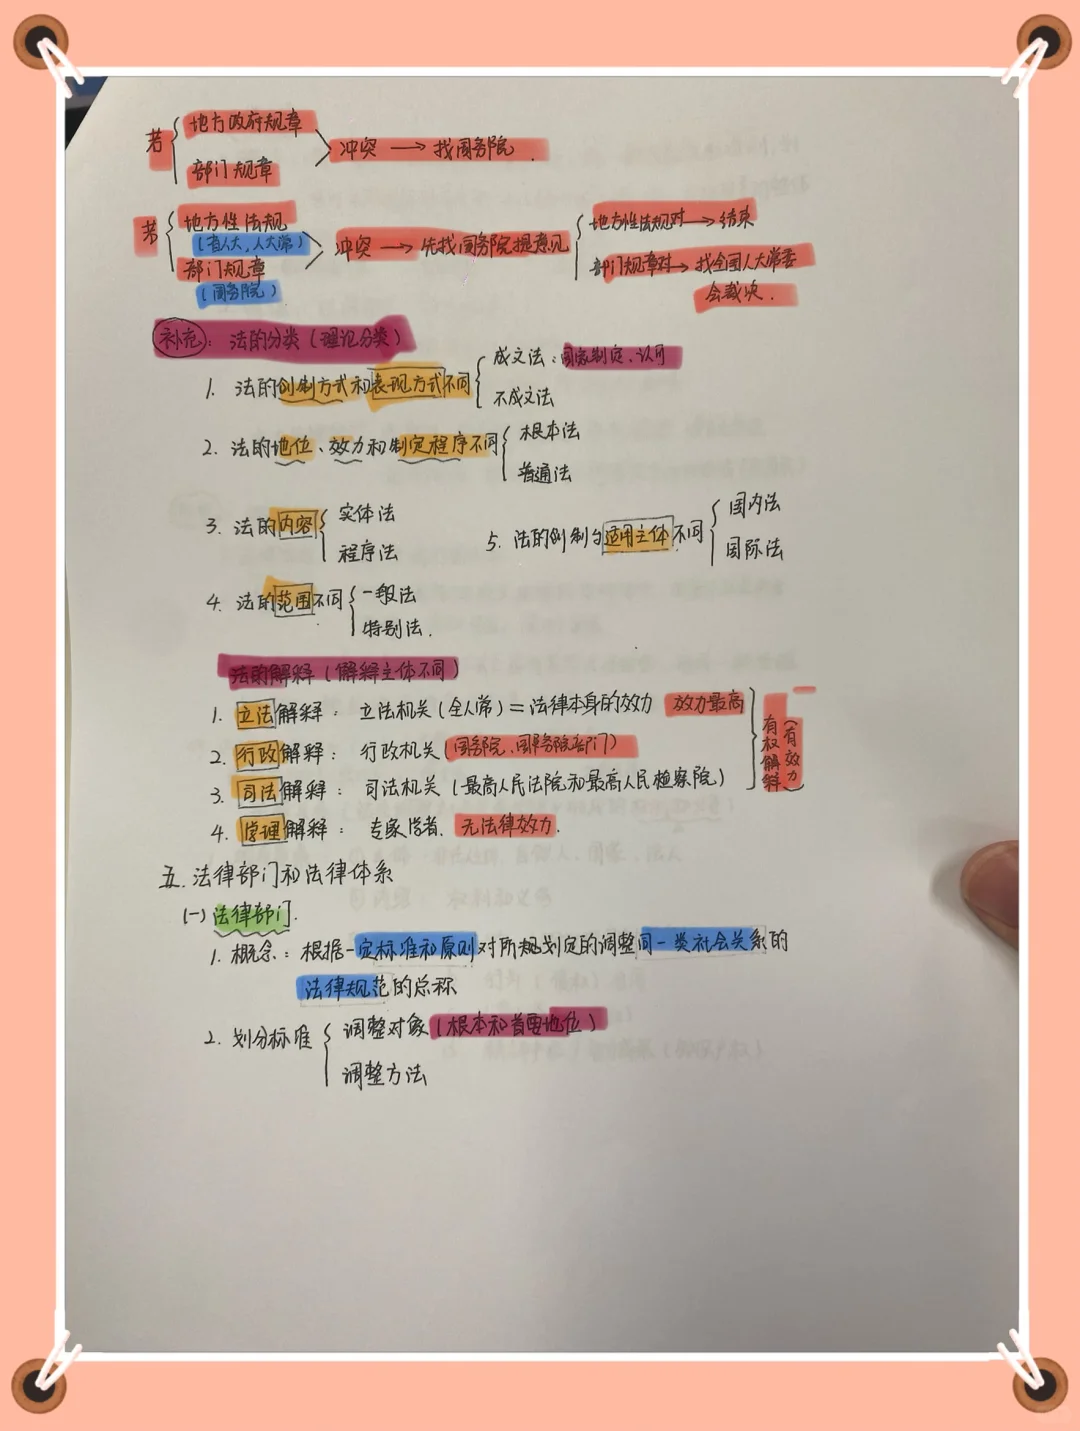 若 { 地方政府规章
部门规章
冲突 → 找国务院.
若 { 地方性法规
(省人大,人大常)
部门规章
(国务院)
冲突 → 先找国务院提意见
地方性法规对 → 结束
部门规章对 → 找全国人大常委
会裁决.
补充: 法的分类(理论分类)
1. 法的创制方式和表现方式不同 { 成文法: 国家制定、认可
不成文法
2. 法的地位、效力和制定程序不同 { 根本法
普通法
3. 法的内容 { 实体法
程序法
5. 法的创制与适用主体不同 { 国内法
国际法
4. 法的范围不同 { 一般法
特别法.
法的解释(解释主体不同)
1. 立法解释: 立法机关(全人常)=法律本身的效力 效力最高
2. 行政解释: 行政机关(国务院、国务院部门)
3. 司法解释: 司法机关(最高人民法院和最高人民检察院)
4. 学理解释: 专家学者. 无法律效力.
有权解释
(有效力)
五. 法律部门和法律体系
(一) 法律部门.
1. 概念: 根据一定标准和原则对所规划定的调整同一类社会关系的
法律规范的总称
2. 划分标准 { 调整对象(根本和首要地位)
调整方法